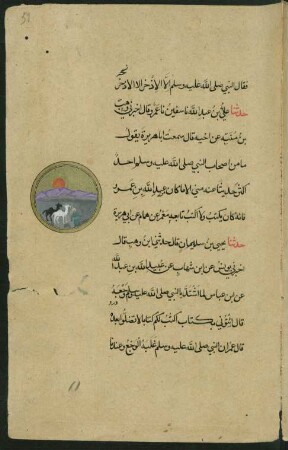 فقال النبي صلى الله عليه وسلم الا الاذخر الا الاذخر
حدثنا علي بن عبد الله نا سفين نا عمرو قال اخبرني وهب
بن منبه عن اخيه قال سمعت ابا هريرة يقول
ما من اصحاب النبي صلى الله عليه وسلم احد
اكثر حديثا عنه مني الا ما كان من عبد الله بن عمرو
فانه كان يكتب ولا اكتب تابعه معمر عن همام عن ابي هريرة
حدثنا يحيى بن سليمان قال حدثني بن وهب قال
اخبرني يونس عن ابن شهاب عن عبيد الله بن عبد الله
عن ابن عباس لما اشتد بالنبي صلى الله عليه وسلم وجعه
قال ائتوني بكتاب اكتب لكم كتابا لا تضلوا بعده
قال عمر ان النبي صلى الله عليه وسلم غلبه الوجع وعندنا